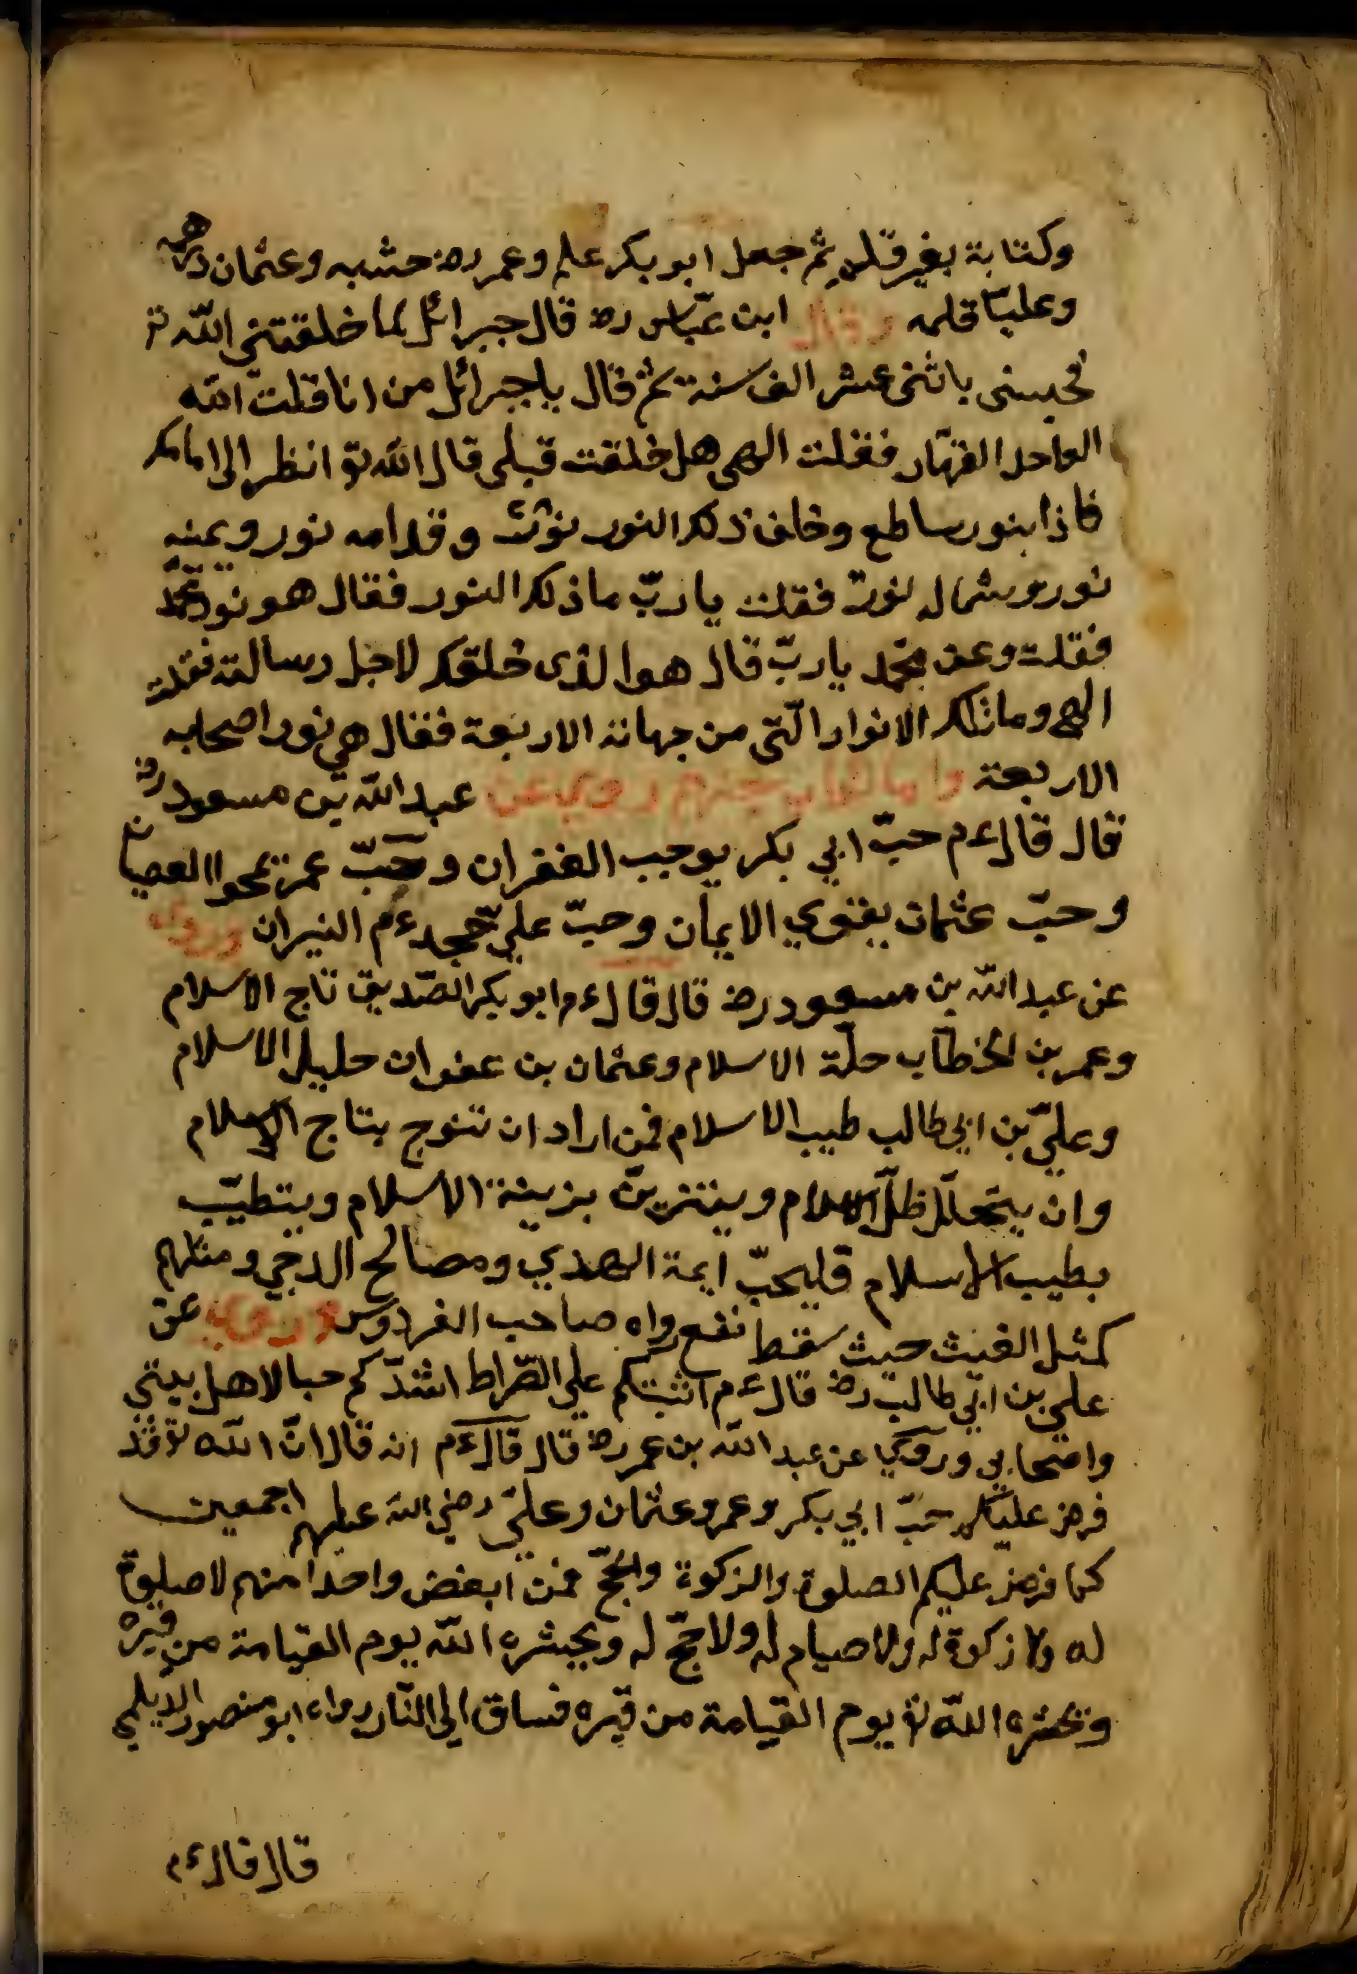 وكتابة بغير قلم ثم جعل ابو بكر علم وعمر رض خشبه وعثمان درهمه
وعليّا قلمه وقال ابن عبّاس رض قال جبرائل لما خلقتني اللّه تع
فحبسني باثني عشر الف سنة ثم قال ياجبرائل من انا قلت اللّه
الواحد القهّار فقلت الهي هل خلقت قبلي قال اللّه تع انظر الى امامك
فاذا بنور ساطع وخلف ذلك النور نورٌ وقدامه نور ويمينه
نور وشماله نور فقلت ياربّ ما ذلك النور فقال هو نور محمّد
فقلت وعن محمّد ياربّ قال هو الذي خلقتك لاجل رسالته فقلت
الهي وما تلك الانوار الّتي من جهاته الاربعة فقال هي نور اصحابه
الاربعة عبد اللّه بن مسعود رض
قال قال ءم حبّ ابي بكر يوجب الغفران وحبّ عمر يمحوا العصيان
وحبّ عثمان يقوي الايمان وحبّ علي يخمد ءم النيران وروي
عن عبد اللّه بن مسعود رض قال قال ءم ابو بكر الصّديق تاج الاسلام
وعمر بن الخطّاب حلّة الاسلام وعثمان بن عفوان حليل الاسلام
وعليّ بن ابي طالب طيب الاسلام فمن اراد ان تتوج بتاج الاسلام
وان يتحلّل ظلّ الاسلام ويتزيّن بزينة الاسلام ويتطيّب
بطيب الاسلام فليحبّ ايمة الهدي ومصالح الدجي ومثلهم
كمثل الغيث حيث سقط نفع رواه صاحب الفردوس وروي عن
علي بن ابي طالب رض قال ءم اثبتكم علي الصّراط اشدّكم حبا لاهل بيتي
واصحابي وروي عن عبد اللّه بن عمر رض قال قال ءم انه قال انّ اللّه تع قد
فرض عليكم حبّ ابي بكر وعمر وعثمان وعليّ رضي اللّه عليهم اجمعين
كما فرض عليكم الصلوة والزكوة والحجّ فمن ابغض واحدا منهم لا صلوة
له ولا زكوة له ولا صيام له ولا حجّ له ويحشره اللّه يوم القيامة من قبره
ويحشره اللّه تع يوم القيامة من قبره فساق الي النّار رواه ابو منصور الديلمي
قال قال ءم